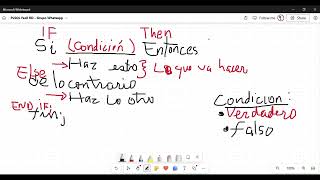 Microsoft Whiteboard
IF Then
Si (Condición) Entonces
→ Haz esto } Lo que va hacer
Else
De lo contrario
→ Haz Lo otro
END IF
fin
Condicion:
• Verdadero
• Falso
100%